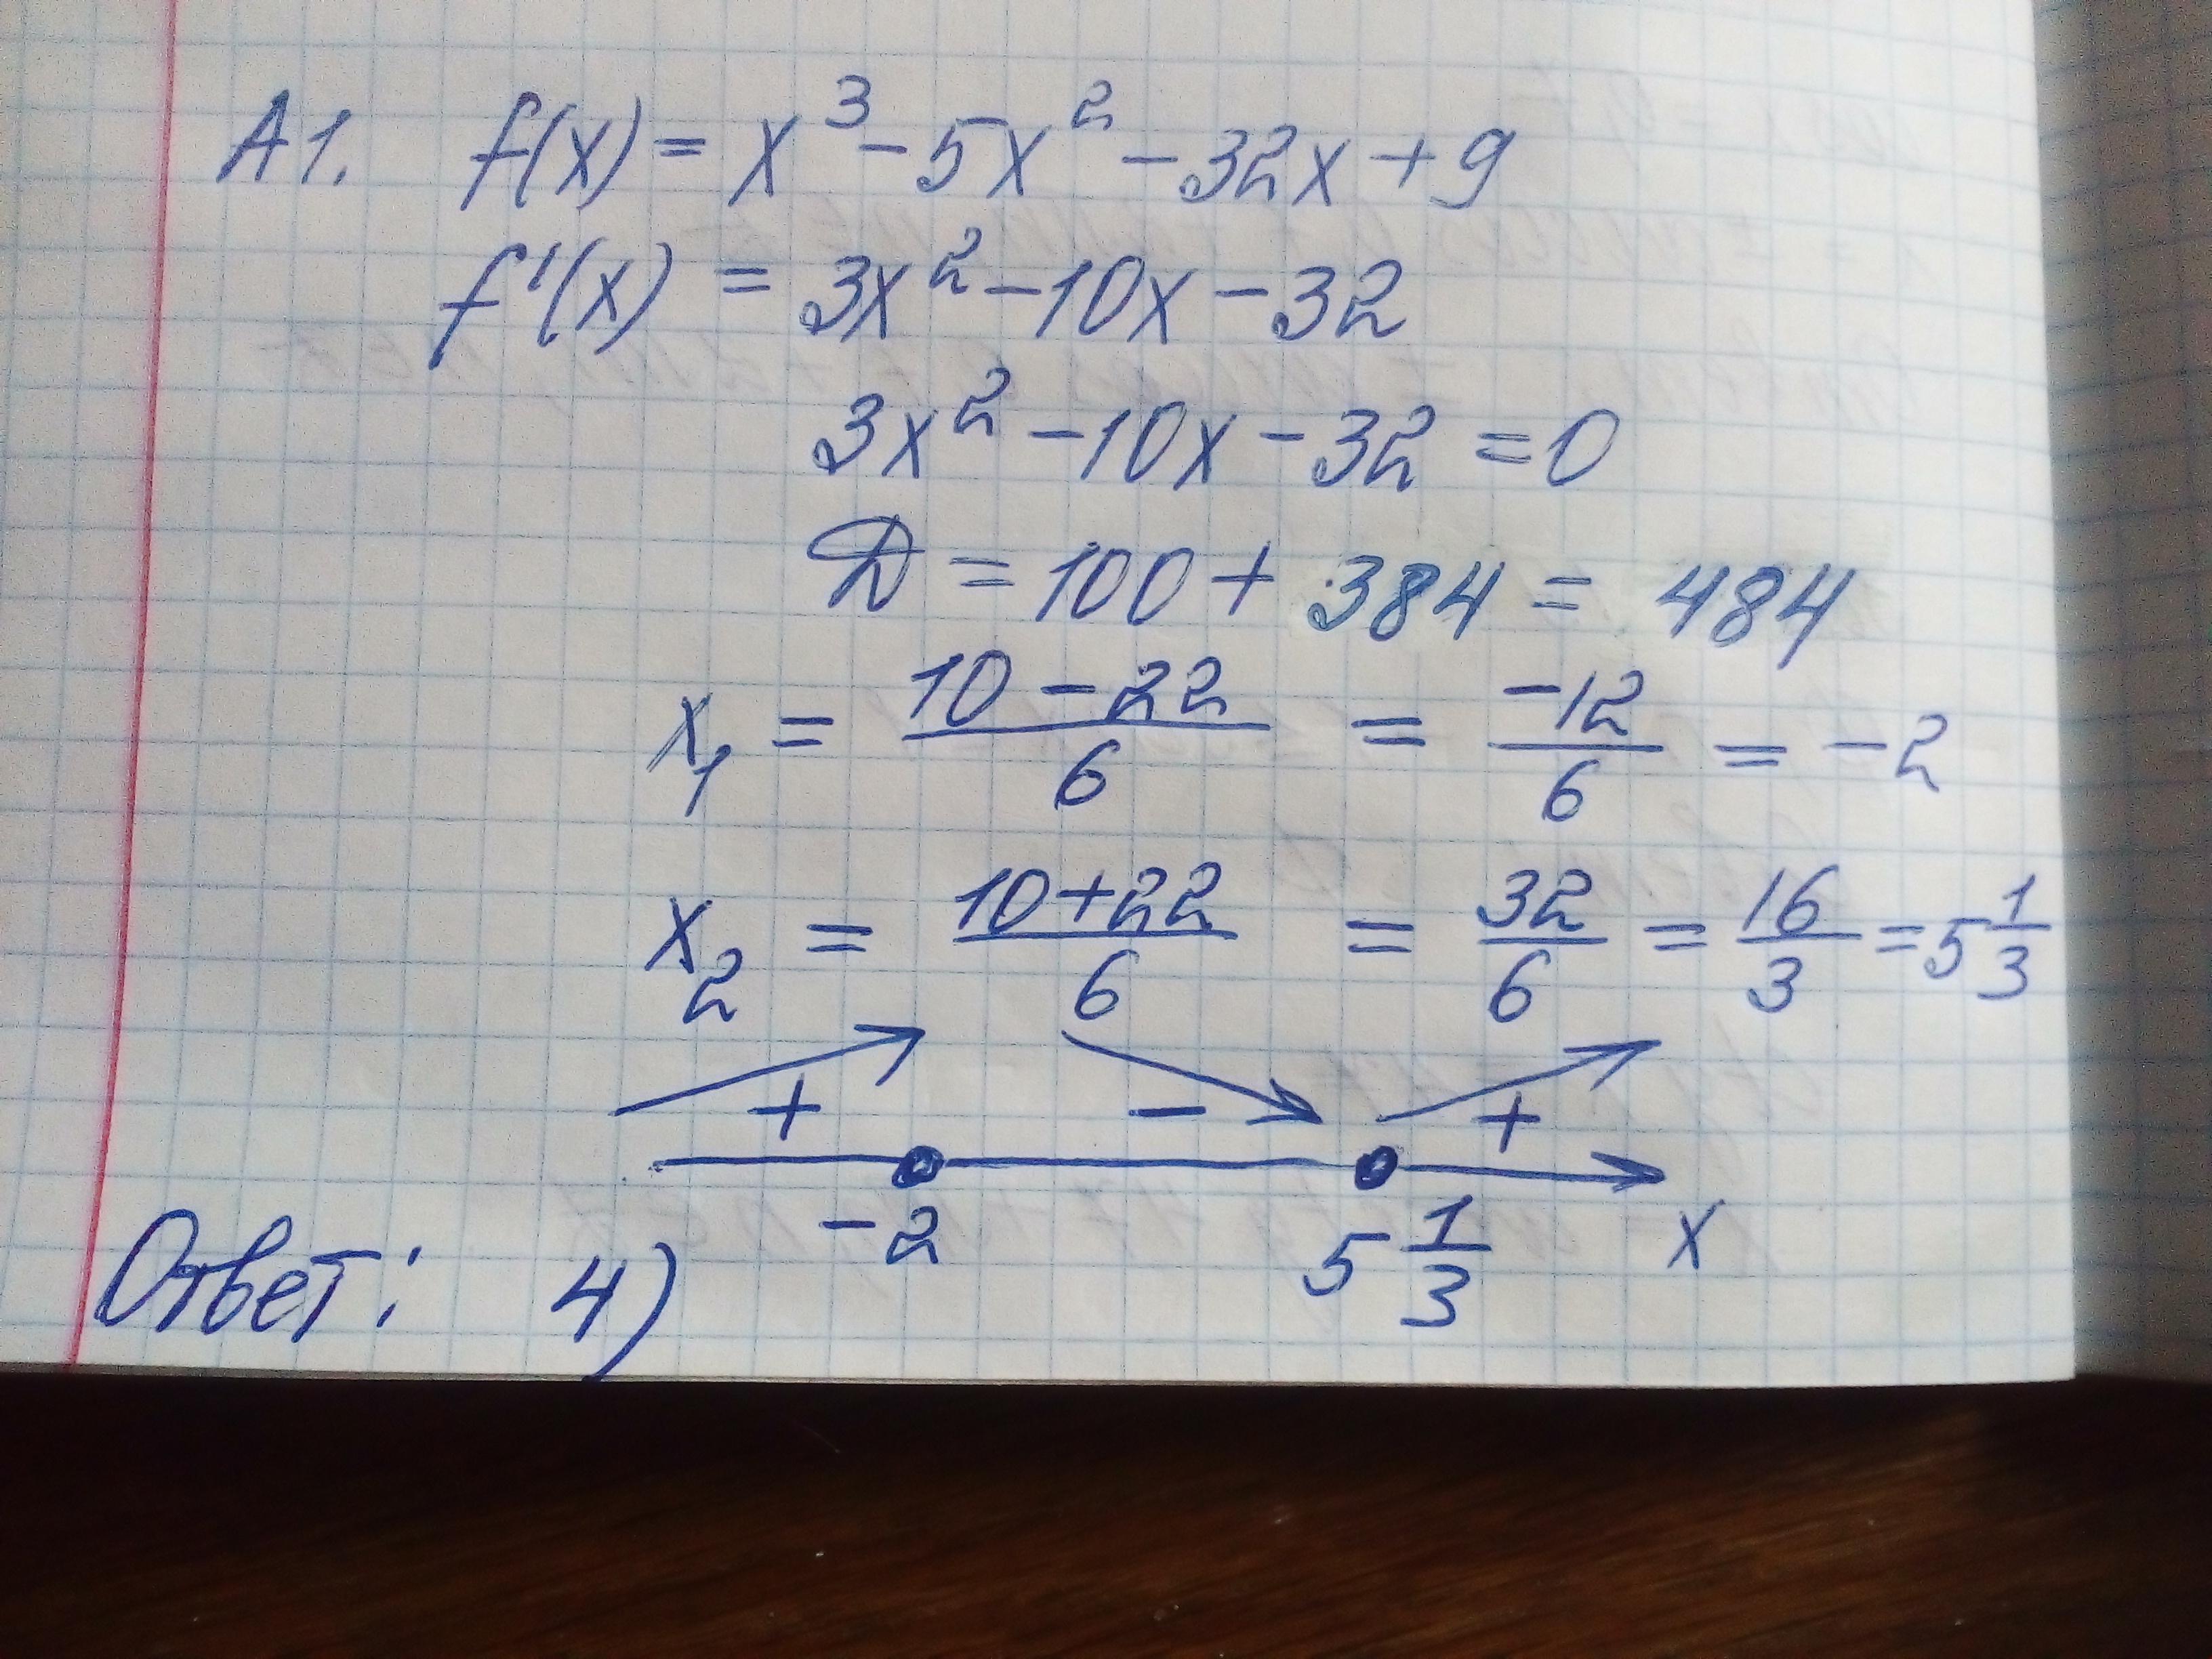 А1. f(x) = x³ - 5x² - 32x + 9
f'(x) = 3x² - 10x - 32
3x² - 10x - 32 = 0
D = 100 + 384 = 484
x₁ = (10 - 22)/6 = -12/6 = -2
x₂ = (10 + 22)/6 = 32/6 = 16/3 = 5 1/3
+ - +
-2 5 1/3 x
Ответ: 4)